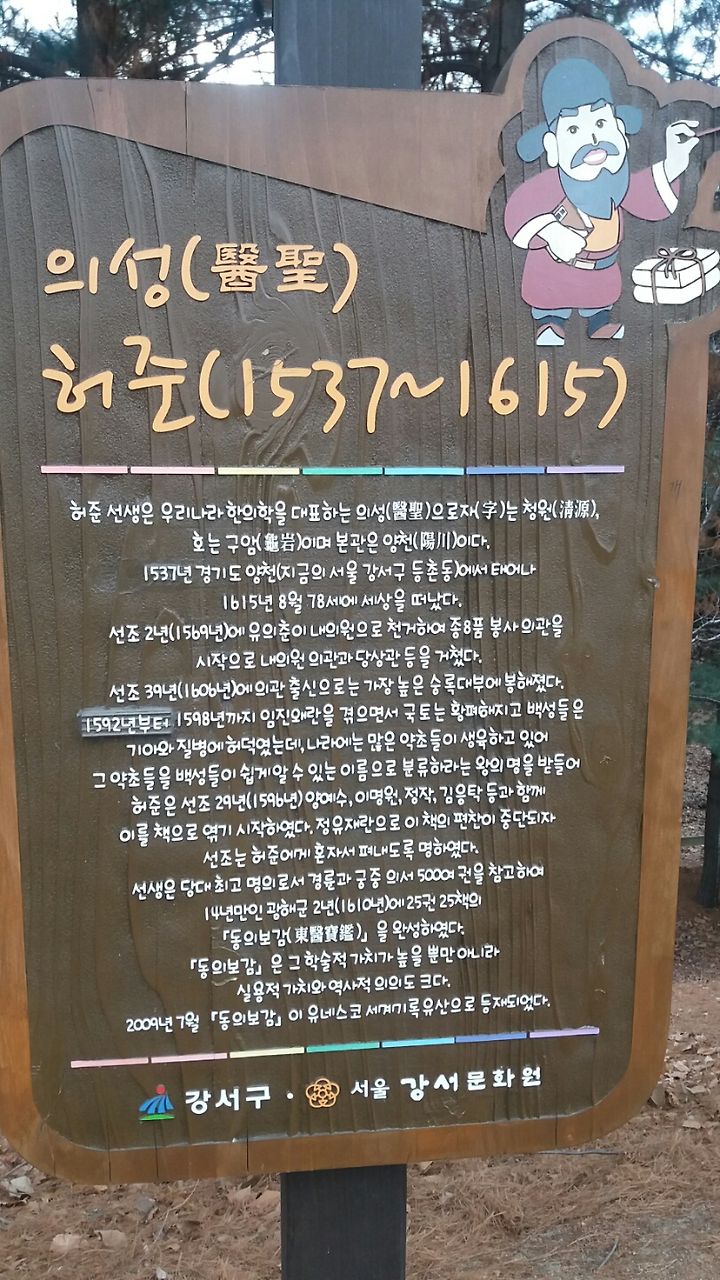 의성(醫聖)
허준(1537~1615)
허준 선생은 우리나라 한의학을 대표하는 의성(醫聖)으로 자(字)는 청원(淸源),
호는 구암(龜岩)이며 본관은 양천(陽川)이다.
1537년 경기도 양천(지금의 서울 강서구 등촌동)에서 태어나
1615년 8월 78세에 세상을 떠났다.
선조 2년(1569년)에 유희춘이 내의원으로 천거하여 종8품 봉사 의관을
시작으로 내의원 의관과 당상관 등을 거쳤다.
선조 39년(1606년)에 의관 출신으로는 가장 높은 숭록대부에 봉해졌다.
1592년부터 1598년까지 임진왜란을 겪으면서 국토는 황폐해지고 백성들은
기아와 질병에 허덕였는데, 나라에는 많은 약초들이 생육하고 있어
그 약초들을 백성들이 쉽게 알 수 있는 이름으로 분류하라는 왕의 명을 받들어
허준은 선조 29년(1596년) 양예수, 이명원, 정작, 김응탁 등과 함께
이를 책으로 엮기 시작하였다. 정유재란으로 이 책의 편찬이 중단되자
선조는 허준에게 혼자서 펴내도록 명하였다.
선생은 당대 최고 명의로서 경륜과 궁중 의서 500여 권을 참고하여
14년만인 광해군 2년(1610년)에 25권 25책의
「동의보감(東醫寶鑑)」을 완성하였다.
「동의보감」은 그 학술적 가치가 높을 뿐만 아니라
실용적 가치와 역사적 의의도 크다.
2009년 7월 「동의보감」이 유네스코 세계기록유산으로 등재되었다.
강서구 · 서울 강서문화원